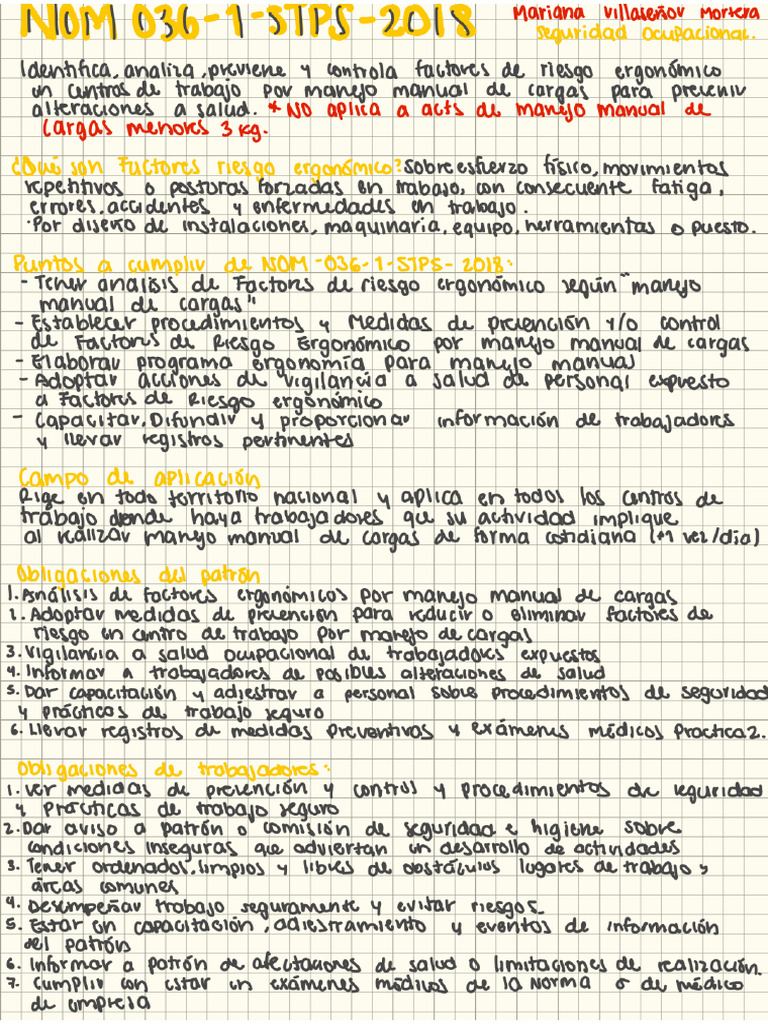 NOM 036-1-STPS-2018
Mariana Villaseñor Mortera
Seguridad Ocupacional.
Identifica, analiza, previene y controla factores de riesgo ergonómico
en centros de trabajo por manejo manual de cargas para prevenir
alteraciones a salud. * No aplica a acts de manejo manual de
cargas menores 3 kg.
¿Qué son Factores riesgo ergonómico? Sobreesfuerzo físico, movimientos
repetitivos o posturas forzadas en trabajo, con consecuente fatiga,
errores, accidentes y enfermedades en trabajo.
· Por diseño de instalaciones, maquinaria, equipo, herramientas o puesto.
Puntos a cumplir de NOM-036-1-STPS-2018:
- Tener analisis de Factores de riesgo ergonómico según "manejo
manual de cargas"
- Establecer procedimientos y Medidas de prevención y/o control
de Factores de Riesgo Ergonómico por manejo manual de cargas
- Elaborar programa ergonomía para manejo manual
- Adoptar acciones de vigilancia a salud de personal expuesto
a Factores de Riesgo ergonómico
- Capacitar, Difundir y proporcionar información de trabajadores
y llevar registros pertinentes
Campo de aplicación
Rige en todo territorio nacional y aplica en todos los centros de
trabajo donde haya trabajadores que su actividad implique
al realizar manejo manual de cargas de forma cotidiana (+1 vez/día)
Obligaciones del patrón
1. Análisis de factores ergonómicos por manejo manual de cargas
2. Adoptar medidas de prevención para reducir o eliminar factores de
riesgo en centro de trabajo por manejo de cargas
3. Vigilancia a salud ocupacional de trabajadores expuestos
4. Informar a trabajadores de posibles alteraciones de salud
5. Dar capacitación y adiestrar a personal sobre procedimientos de seguridad
y prácticas de trabajo seguro
6. Llevar registros de medidas preventivos y exámenes médicos Practica2.
Obligaciones de trabajadores:
1. Ver medidas de prevención y control y procedimientos de seguridad
y prácticas de trabajo seguro
2. Dar aviso a patrón o comisión de seguridad e higiene sobre
condiciones inseguras que adviertan en desarrollo de actividades
3. Tener ordenados, limpios y libres de obstáculos lugares de trabajo y
áreas comunes
4. Desempeñar trabajo seguramente y evitar riesgos.
5. Estar en capacitación, adiestramiento y eventos de información
del patrón
6. Informar a patrón de afectaciones de salud o limitaciones de realización.
7. Cumplir con estar en exámenes médicos de la Norma o de médico
de empresa